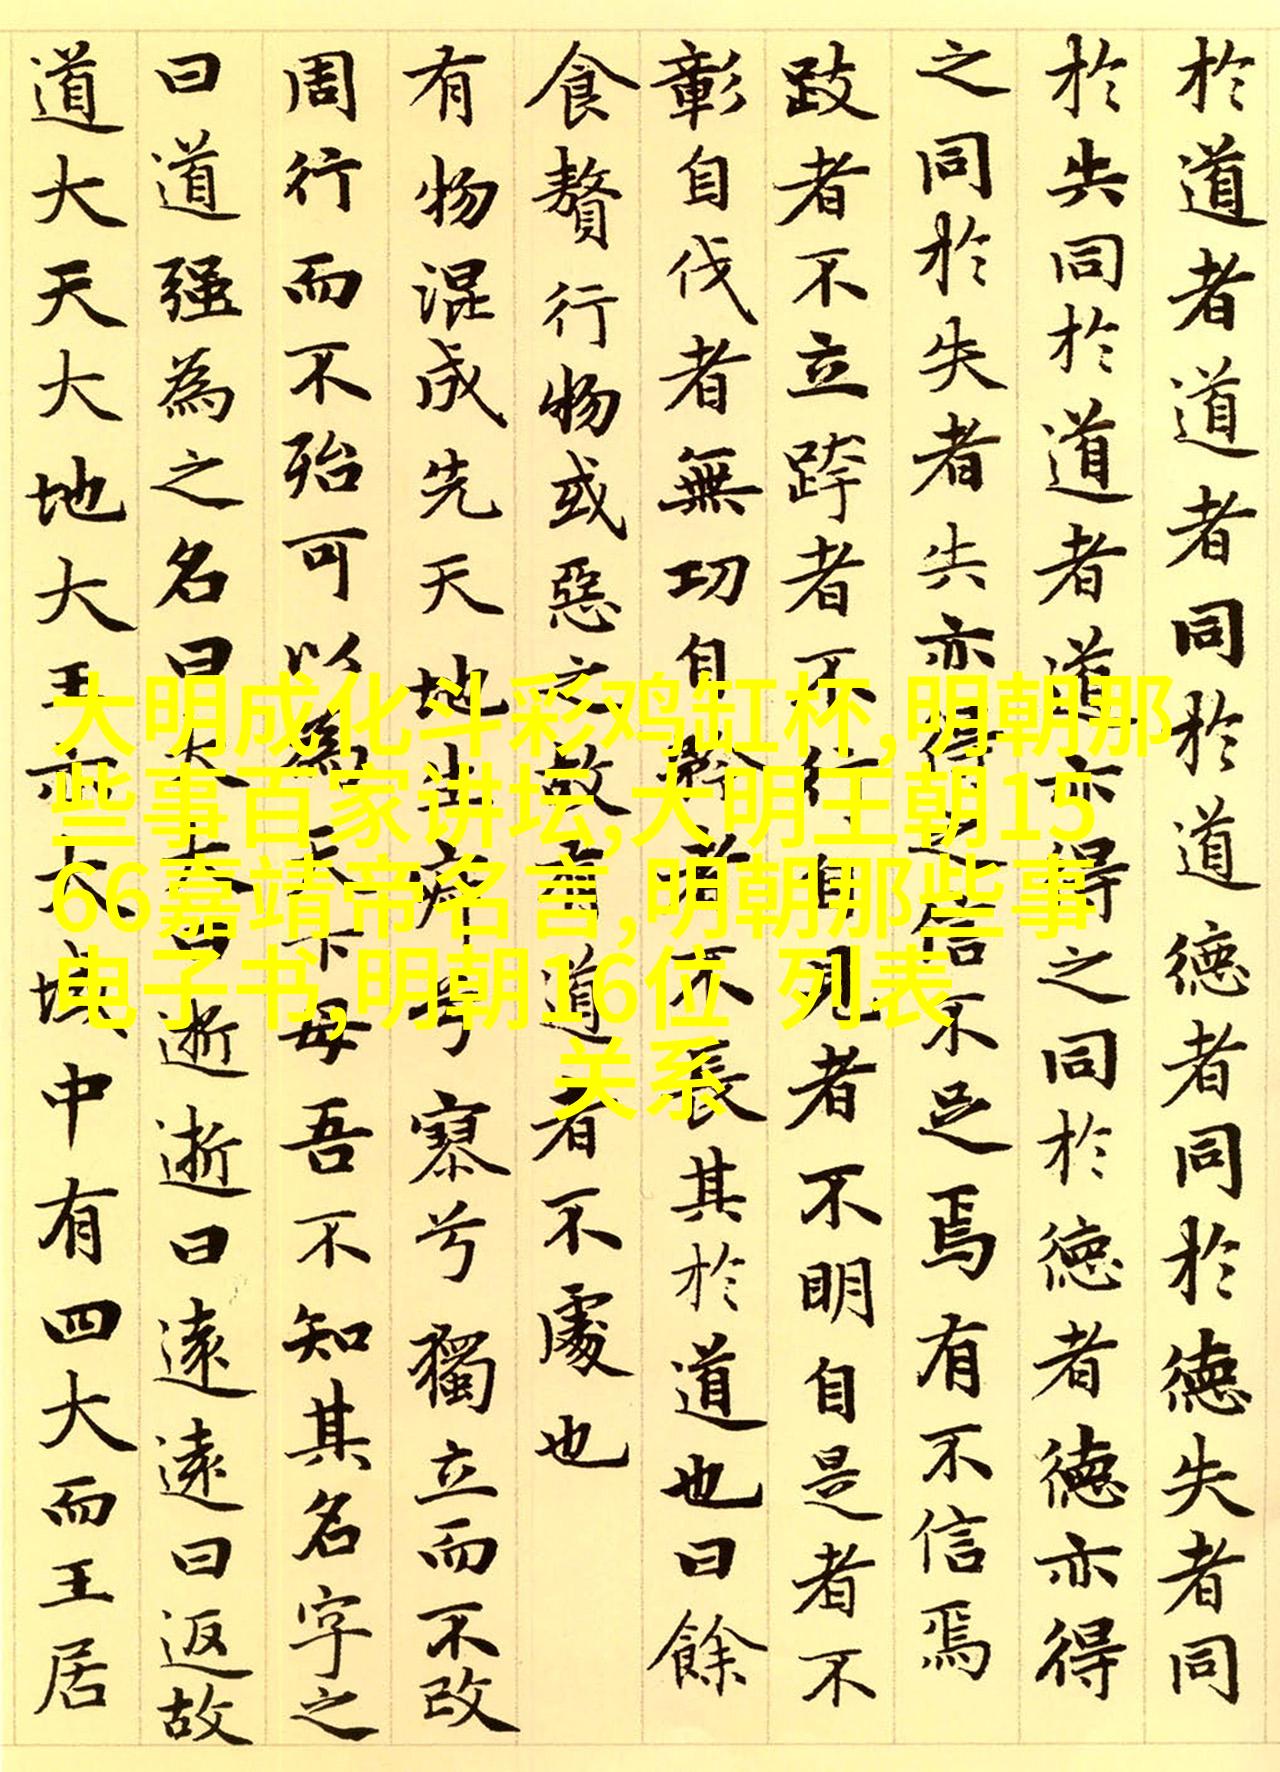 於道者道者同於道德者同於德失者同
於失同於道者道亦得之同於德者德亦得
之同於失者失亦得之信不足焉有不信焉
跂者不立跨者不行自見者不明自是者不
彰自伐者無功自矜者不長其於道也曰餘
食贅行物或惡之故有道者不處也
有物混成先天地生寂兮寥兮獨立而不改
周行而不殆可以為天下母吾不知其名字之
曰道强為之名曰大大曰逝逝曰遠遠曰返故
道大天大地大王亦大域中有四大而王居
大明成化斗彩鸡缸杯,明朝那
些事百家讲坛,大明王朝15
66嘉靖帝名言,明朝那些事
电子书,明朝16位 列表
关系